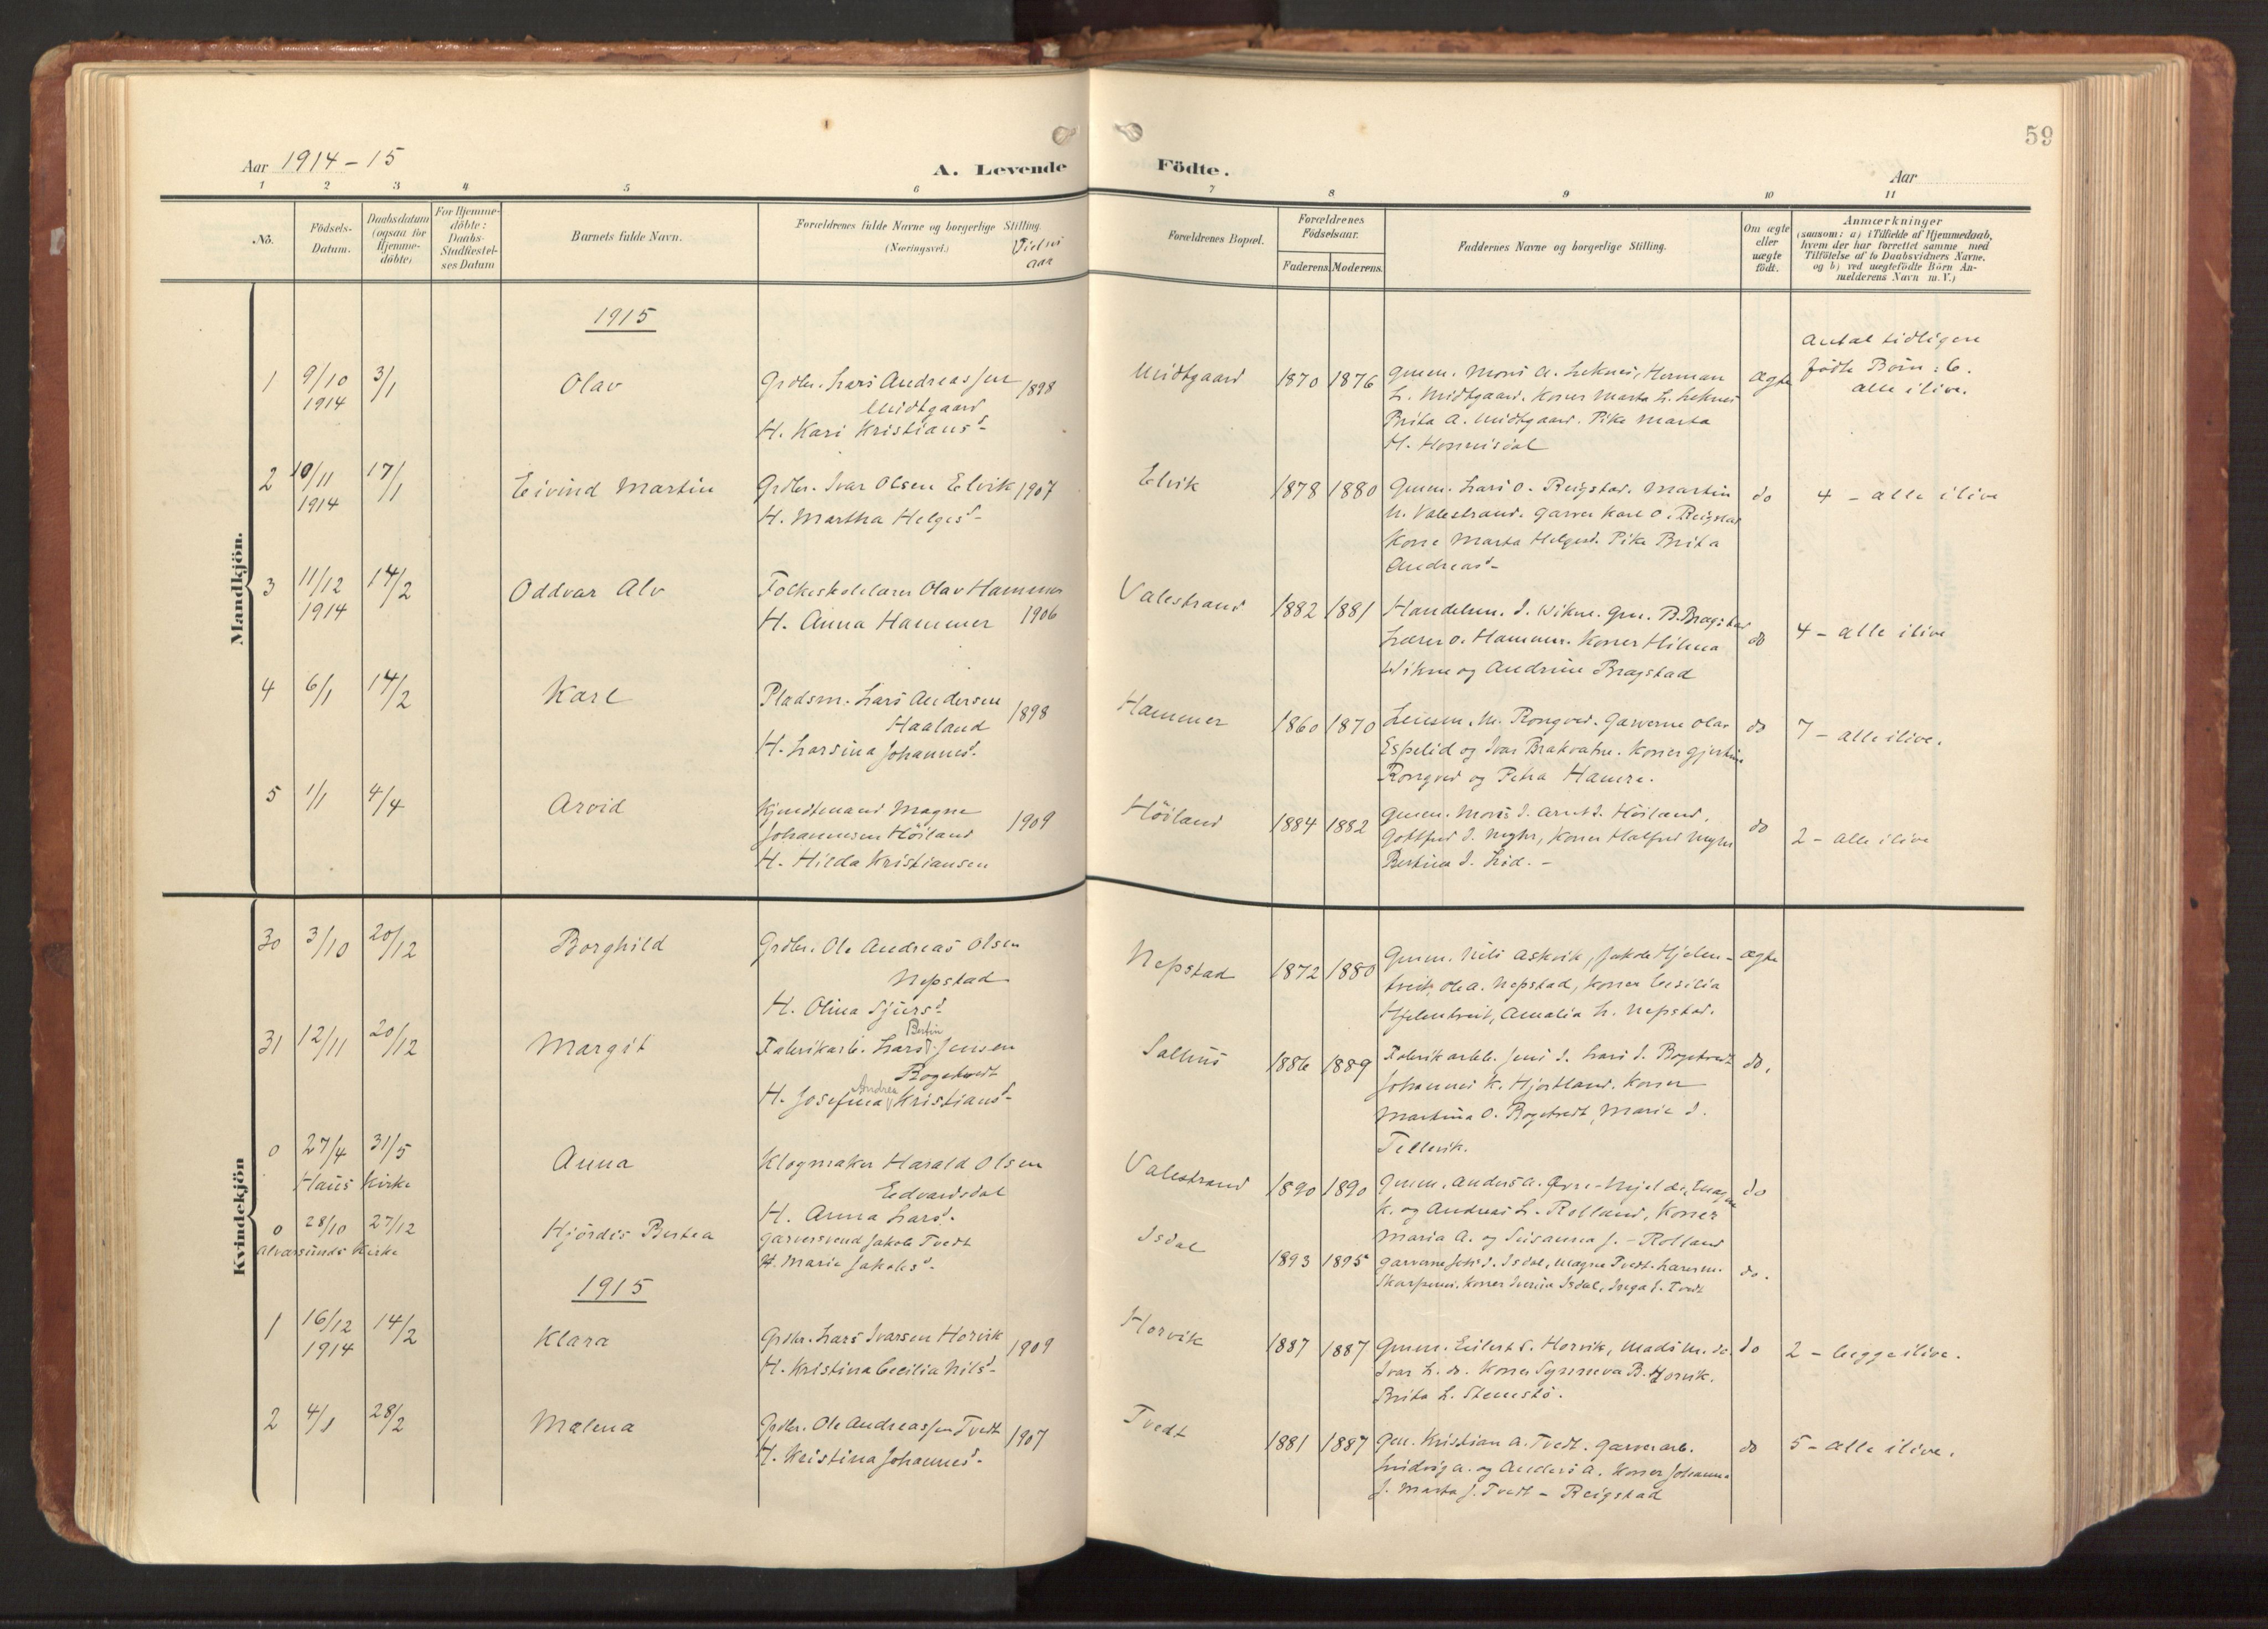 59
Aar 1914-15
A. Levende
Födte.
Aar
1 2 3 4 5 6 7 8 9 10 11
Nö.
Födsels-
Datum.
Daabsdatum
(ogsaa for
Hjemme-
döbte)
For Hjemme-
döbte:
Daabs-
Stadfæstel-
ses Datum
Barnets fulde Navn.
Forældrenes fulde Navne og borgerlige Stilling.
(Næringsvei.)
Vielsi
aar
Forældrenes Bopæl.
Forældrenes
Födselsaar.
Faderens.
Moderens.
Faddernes Navne og borgerlige Stilling.
Om ægte
eller
uægte
födt.
Anmærkninger
(saasom: a) i Tilfælde af Hjemmedaab,
hvem der har forrettet samme med
Tilföielse af to Daabsvidners Navne,
og b) ved uægtefödte Börn An-
melderens Navn m. V.)
Mandkjön.
1915
Antal tidligere
fødte Børn: 6.
alle ilive.
1
9/10
1914
3/1
Olav
Grdbr. Lars Andreassen
Midtgaard
H. Kari Kristiansd-
1898
Midtgaard
1870
1876
Gmen. Mons A. Leknes, Herman
L. Midtgaard. Koner Marta L. Leknes
Brita A. Midtgaard. Pike Marta
Ægte
2
10/11
1914
17/1
Eivind Martin
Grdbr. Ivar Olsen Elvik
H. Martha Helgesd-
1907
Elvik
1878
1880
Gmen. Lars O. Reigstad. Martin
N. Valestrand. Garver Karl O. Reigstad
Kone Marta Helgesd. Pike Brita
Andreasd-
do
4 - alle ilive
3
11/12
1914
14/2
Oddvar Alv
Folkeskolelærer Olav Hammer
H. Anna Hammer
1906
Valestrand
1882
1881
Handelsm. J. Wikne. Gm. B. Bragstad
Lærer O. Hammer. Koner Hilma
Wikne og Andrine Bragstad
do
4 - alle ilive
4
6/1
14/2
Karl
Pladsm. Lars Andersen
Haaland
H. Larsina Johannesd.
1898
Hammer
1860
1870
Lensm. M. Rongved. Garverne Olav
Espelid og Ivar Brakvatne. Koner Gjertine
Rongved og Petra Hamre.
do
7 - alle ilive.
5
1/1
4/4
Arvid
Kjendtmand Magne
Johannesen Höiland
H. Hilda Kristiansen
1909
Höiland
1884
1882
Gmen. Mons J. Arnt J. Höiland.
Gottfred J. Myhr, Koner Halfrid Myhr
do
2 - alle ilive
Kvindekjön
30
3/10
20/12
Borghild
Grdbr. Ole Andreas Olsen
Nepstad
H. Olina Sjursd-
Nepstad
1872
1880
Gmen. Nils Askvik, Jakob Hjelm-
tveit, Ole A. Nepstad, Koner Cesilia
Hjelmtveit, Amalia L. Nepstad.
ægte
31
12/11
20/12
Margit
Bertin
Fabrikarb. Lars Jensen
Bogetvedt
Andrea
H. Josefina Kristiansd-
Salhus
1886
1889
Fabrikarbb. Jens J. Lars J. Bogetvedt
Johannes K. Hjortland. Koner
Martina O. Bogetvedt, Marie J.
Tellevik.
do.
0
27/4
31/5
Haus Kirke
Anna
Klogmaker Harald Olsen
Edvardsdal
H. Anna Larsd.
Valestrand
1890
1890
Gmen. Anders A. Øvre-Mjelde, Magne
K. og Andreas L. Rolland, Koner
Maria A. og Susanna J. - Rolland
do
0
28/10
27/12
Alversunds Kirke
Hjördis Bertea
Garversvend Jakob Tvedt
H. Marie Jakobsd-
Isdal
1893
1895
Garverne Johs J. Isdal, Magne Tvedt. Lærer M.
do.
1915
1
16/12
1914
14/2
Klara
Grdbr. Lars Ivarsen Horvik
H. Kristina Cecilia Nilsd-
1909
Horvik
1887
1887
Gmen. Eilert S. Horvik, Mads M. do.
Ivar L. do. Koner Synneva B. Horvik.
Brita L. Stenestö.
do
2 - begge ilive.
2
4/1
28/2
Malena
Grdbr. Ole Andreassen Tvedt
H. Kristina Johannesd-
1907
Tvedt
1881
1887
Gm. Kristian A. Tvedt. Garverarb.
Ludvig A. og Anders A. Koner Johanna
J. Marta J. Tvedt - Reigstad
do
5 - alle ilive.